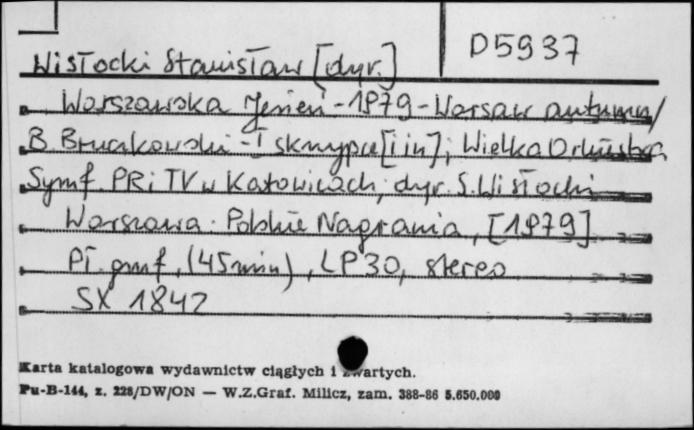 D5937
Wisłocki Stanisław [dyr.]
Warszawska Jesień - 1979 - Warsaw autumn /
B. Bruczkowski - I skrzypce [i in]; Wielka Orkiestra
Symf. PR i TV w Katowicach; dyr. S. Wisłocki
Warszawa: Polskie Nagrania, [1979]
Pł. gmf, (45 min), LP 30, stereo
SX 1842
Karta katalogowa wydawnictw ciągłych i zwartych.
Pu-B-144, z. 228/DW/ON — W.Z.Graf. Milicz, zam. 388-86 5.650.000